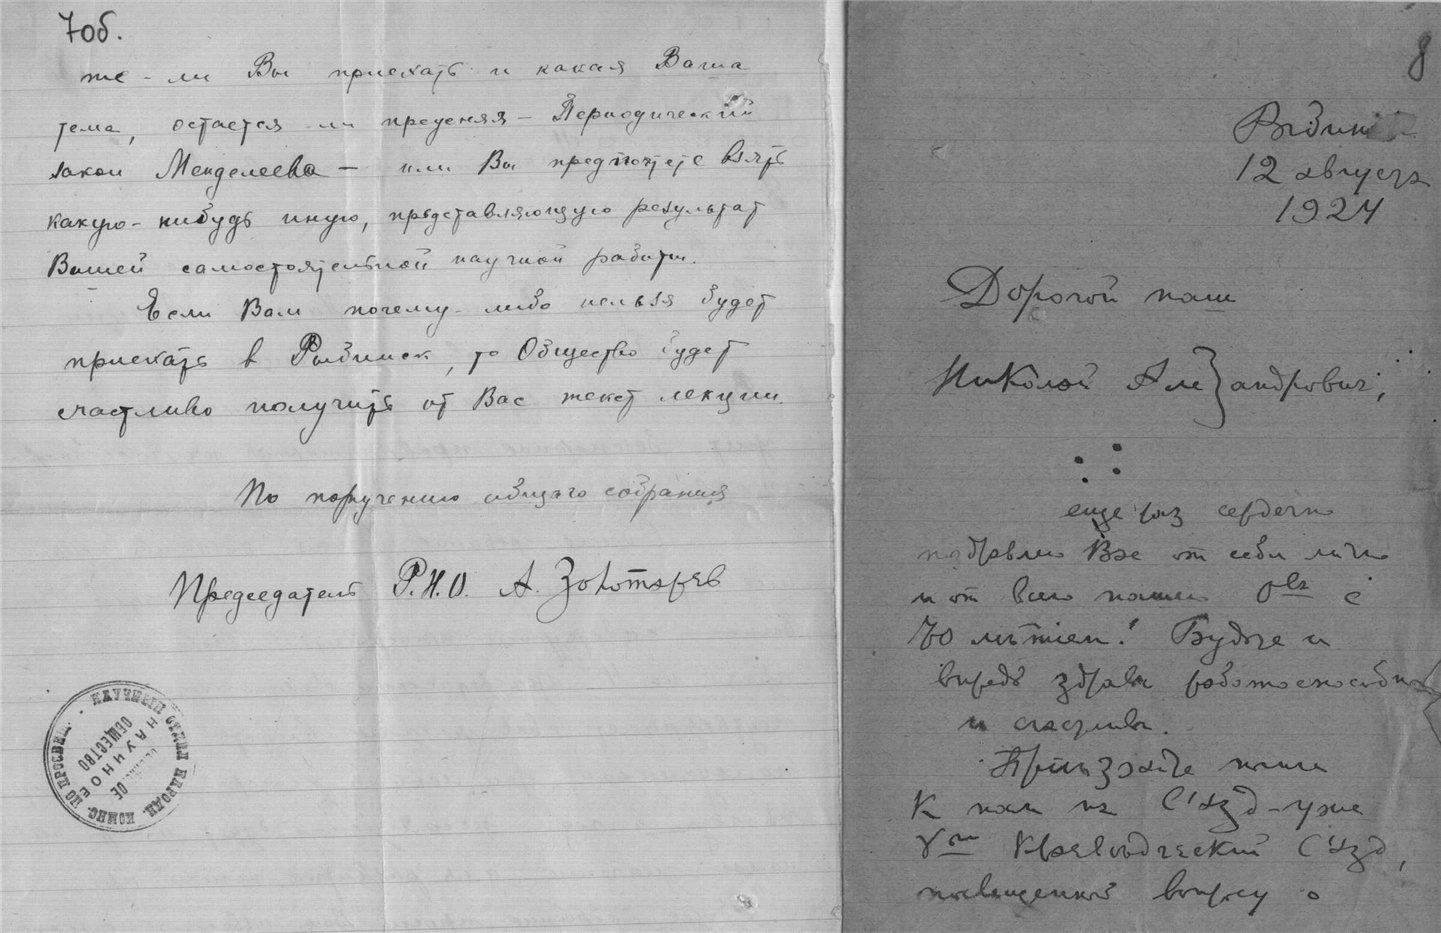 7об.
те-ли Вы приехать и какая Ваша
тема, остается ли прежняя – Периодический
закон Менделеева – или Вы предпочтете взять
какую-нибудь иную, представляющую результат
Вашей самостоятельной научной работы.
Если Вам почему-либо нельзя будет
приехать в Рыбинск, то Общество будет
счастливо получить от Вас текст лекции.
По поручению общего собрания
Председатель Р.Н.О. А. Золотарев
НАУЧНЫЙ ОТДЕЛ НАРОДН. КОМИС. ПО ПРОСВЕЩ.
НАУЧНОЕ
ОБЩЕСТВО
8
Рыбинск
12 августа
1924
Дорогой наш
Николай Александрович,
еще раз сердечно
поздравляю Вас от себя лично
и от всего нашего О-ва с
70 летием! Будьте и
впредь здравы работоспособны
и счастливы.
Приезжайте
к нам на С'езд – уже
V-й Краеведческий С'езд,
посвященный вопросу о